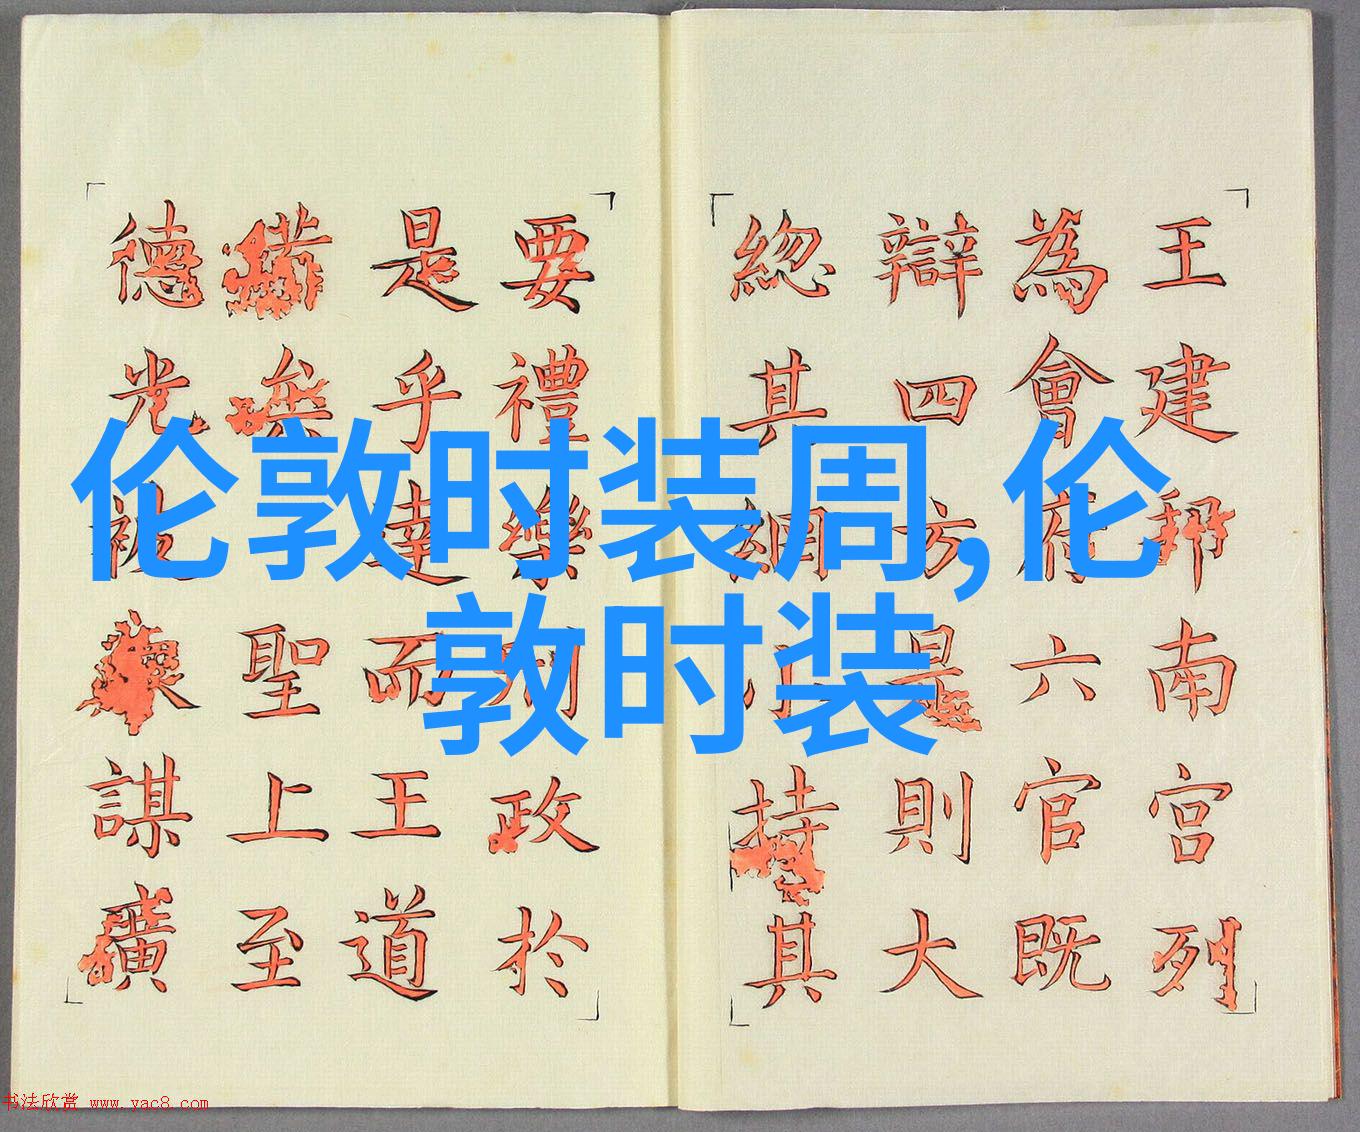 伦敦时装周,伦
敦时装
王建邦南宮列
為會府六官既
辯四方是則大
緫其持其
要禮樂政於
是乎達而王道
備矣聖上至
德光謀
书法欣赏 www.yac8.com